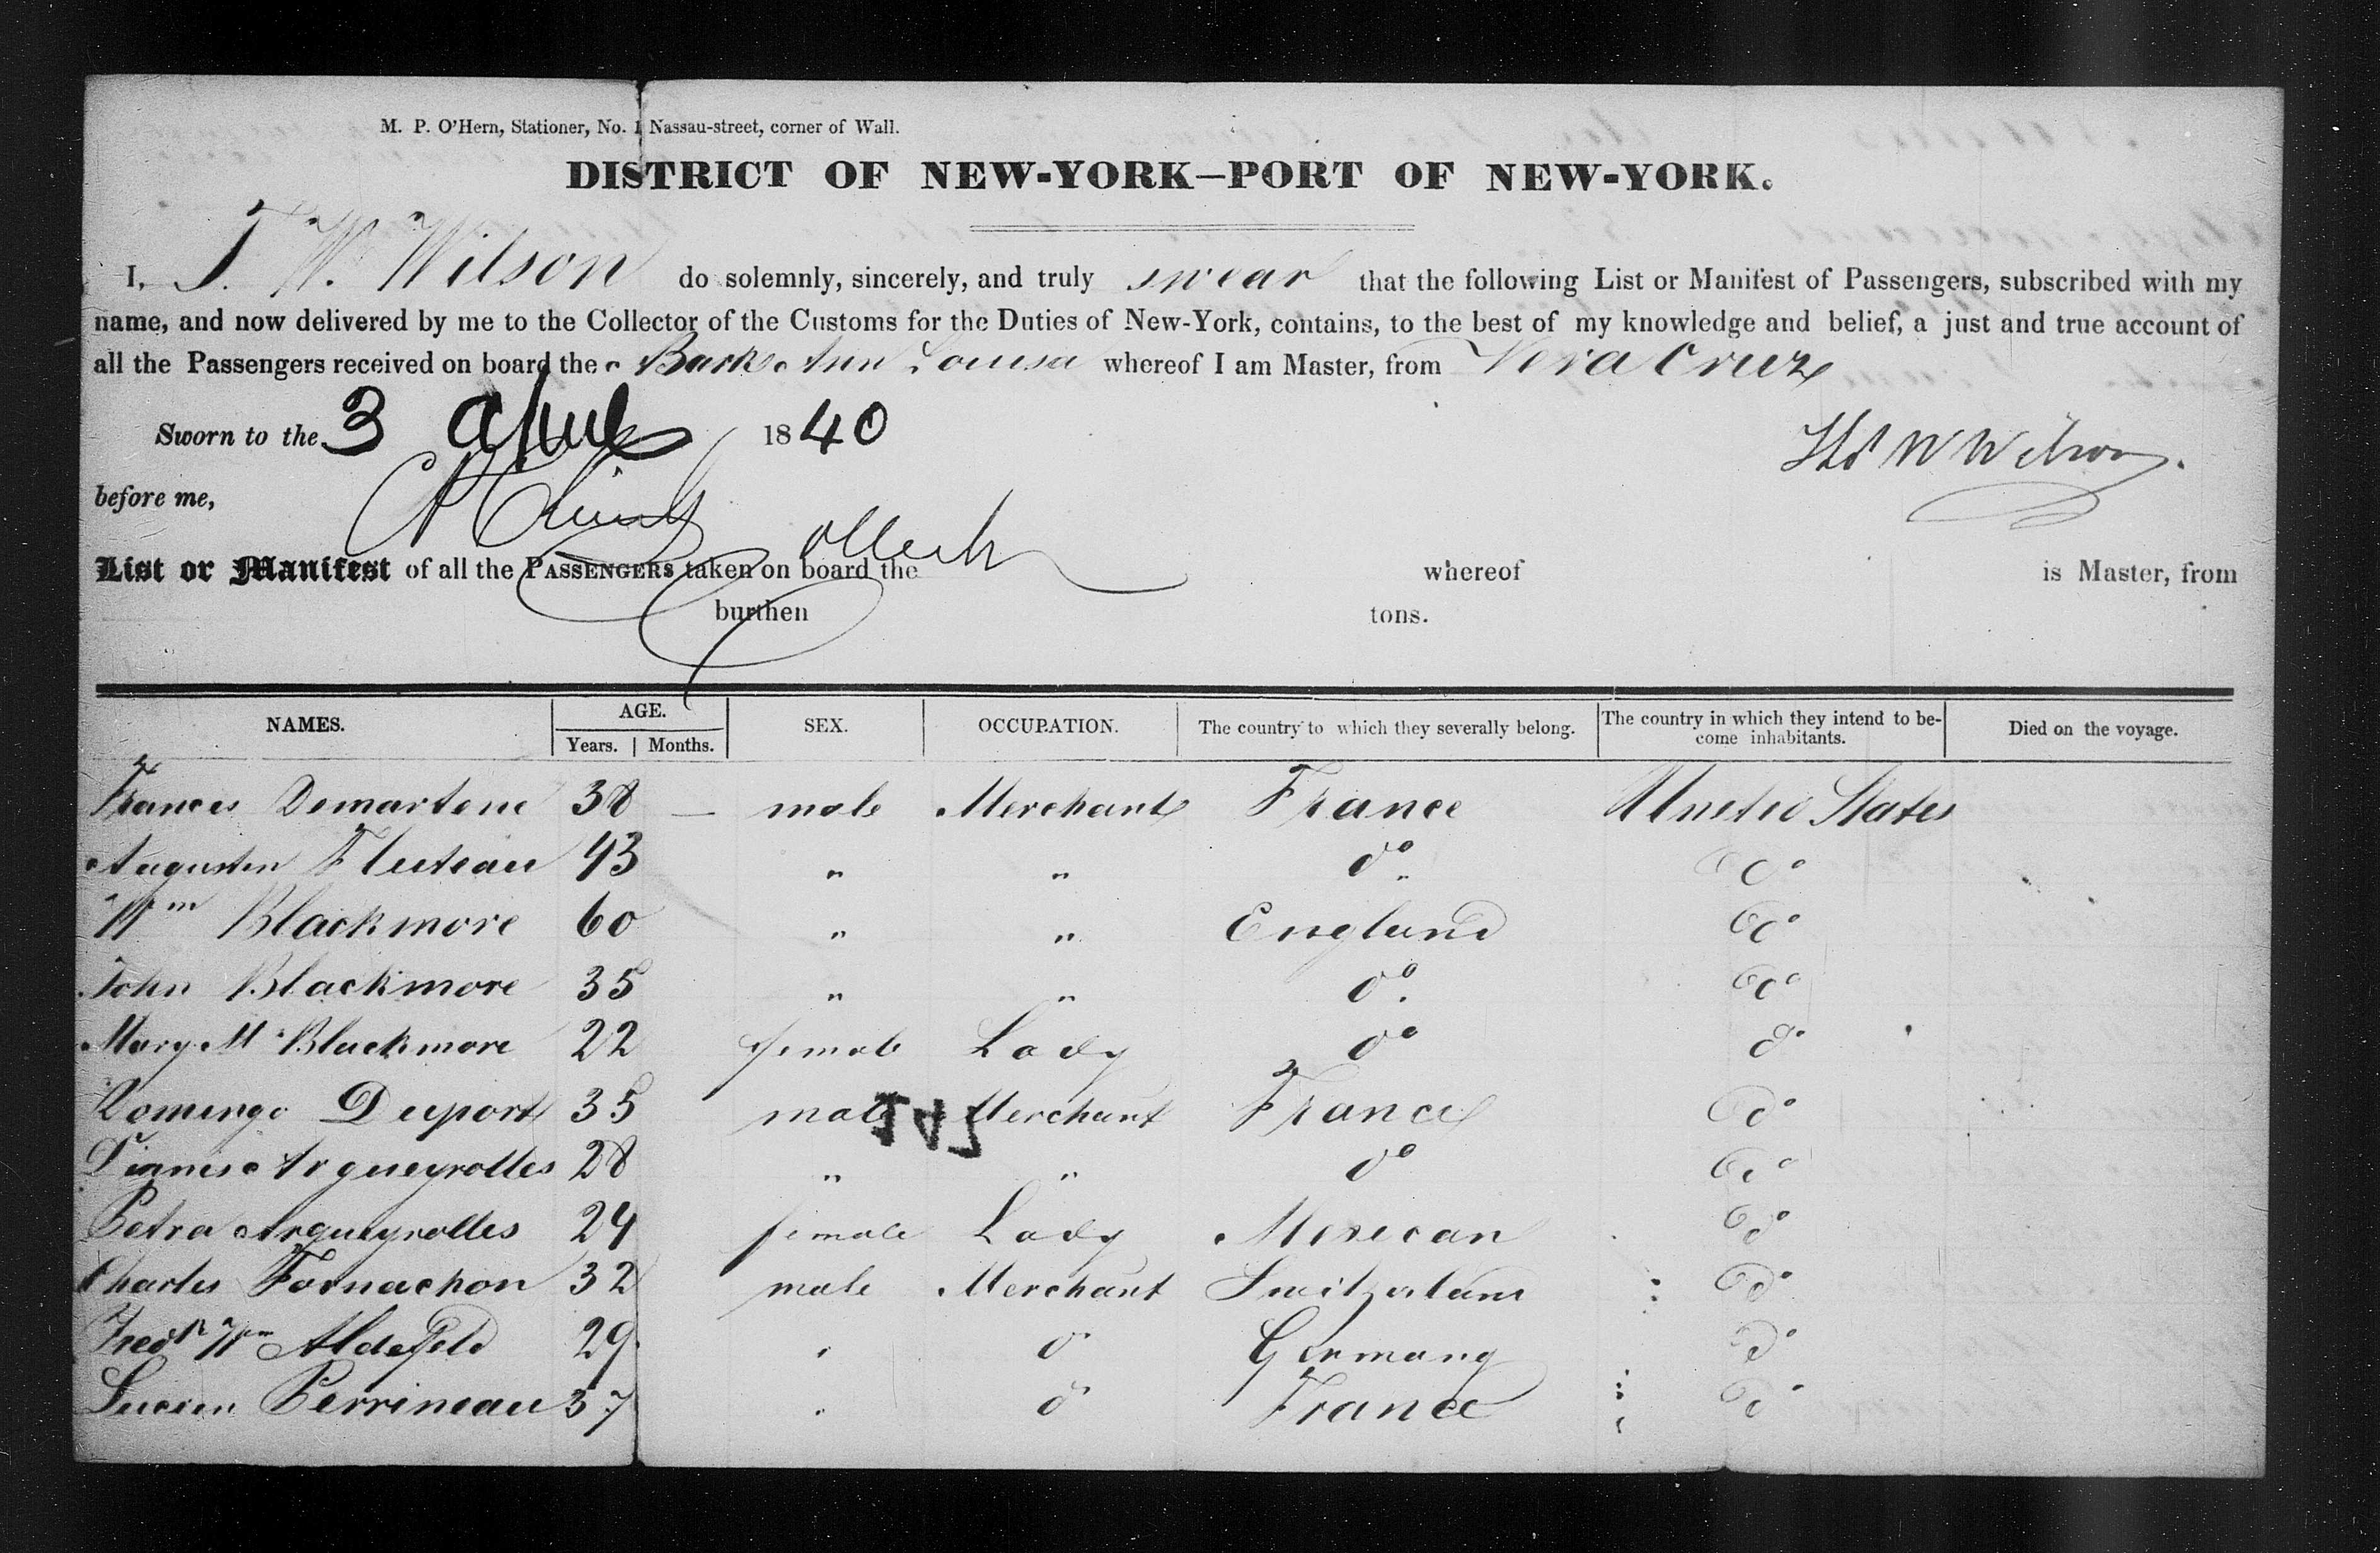 M. P. O'Hern, Stationer, No. 1 Nassau-street, corner of Wall.
DISTRICT OF NEW-YORK—PORT OF NEW-YORK.
I, T. W. Wilson do solemnly, sincerely, and truly swear that the following List or Manifest of Passengers, subscribed with my
name, and now delivered by me to the Collector of the Customs for the Duties of New-York, contains, to the best of my knowledge and belief, a just and true account of
all the Passengers received on board the Bark Ann Louisa whereof I am Master, from Vera Cruz
Sworn to the 3 April 1840
Thos W Wilson
before me,
List or Manifest of all the PASSENGERS taken on board the whereof is Master, from
burthen tons.
NAMES. AGE. Years. Months. SEX. OCCUPATION. The country to which they severally belong. The country in which they intend to become inhabitants. Died on the voyage.
Frances Demartene 38 — male Merchant France United States
Augusten Fluteau 43 " " do do
Wm Blackmore 60 " " England do
John Blackmore 35 " " do do
Mary M Blackmore 22 female Lady do do
Domingo Duport 35 male Merchant France do
147
Argueyrolles 28 " " do do
Petra Argueyrolles 24 female Lady Mexican do
Charles Fornachon 32 male Merchant Switzerland do
Fredk Wm Aldefeld 29 " do Germany do
Lucien Perrineau 37 " do France do